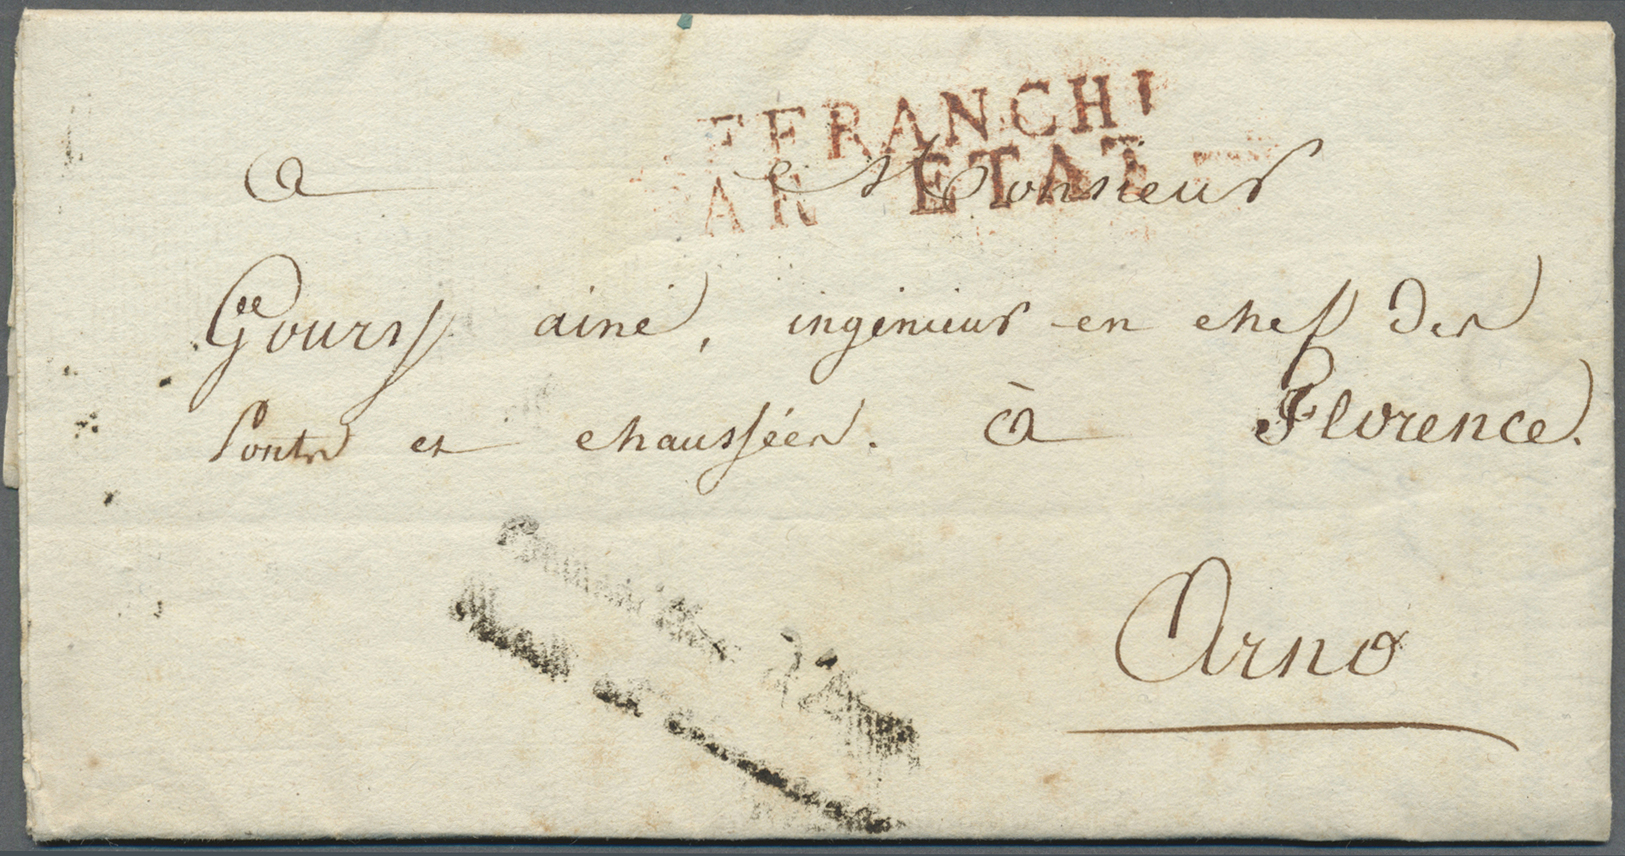 FFRANCHI
AR ETAT
a Monsieur
Goury ainé, ingénieur en chef des
Ponts et chaussées. à Florence.
Arno